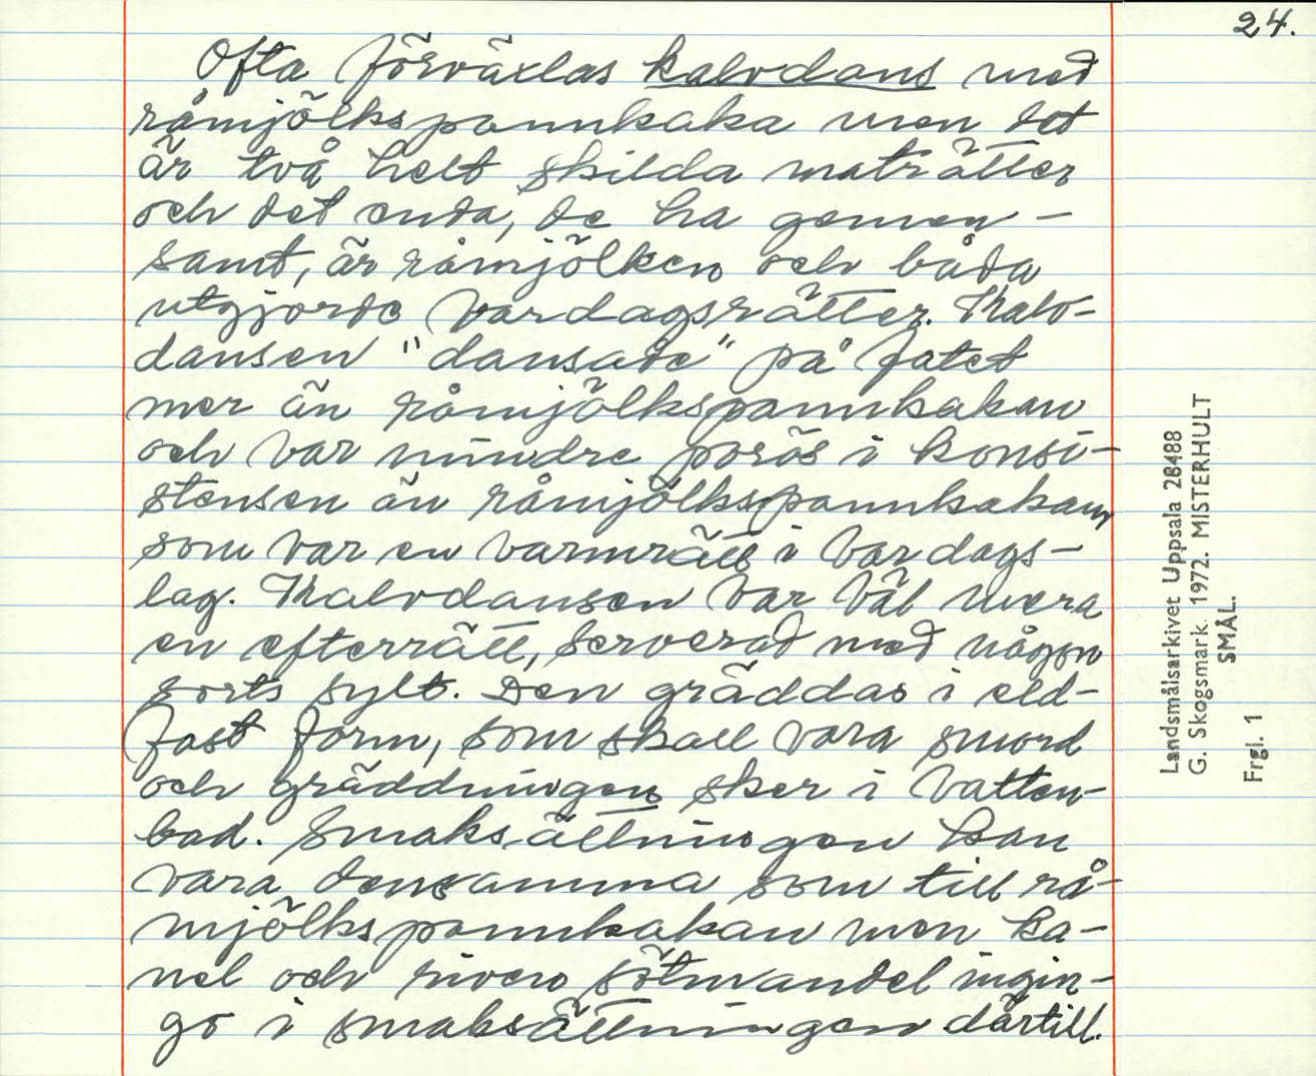 24.
Ofta förväxlas kalvdans med
råmjölkspannkaka men det
är två helt skilda maträtter
och det enda, de ha gemen-
samt, är råmjölken och båda
utgjorde vardagsrätter. Kalv-
dansen "dansade" på fatet
mer än råmjölkspannkakan
och var mindre porös i konsi-
stensen än råmjölkspannkakan,
som var en varmrätt i vardags-
lag. Kalvdansen var väl mera
en efterrätt, serverad med någon
sorts sylt. Den gräddas i eld-
fast form, som skall vara smord
och gräddningen sker i vatten-
bad. Smaksättningen kan
vara densamma som till rå-
mjölkspannkakan men ka-
nel och riven sötmandel ingin-
go i smaksättningen därtill.
Landsmålsarkivet Uppsala 28488
G. Skogsmark. 1972. MISTERHULT
SMÅL.
Frgl. 1